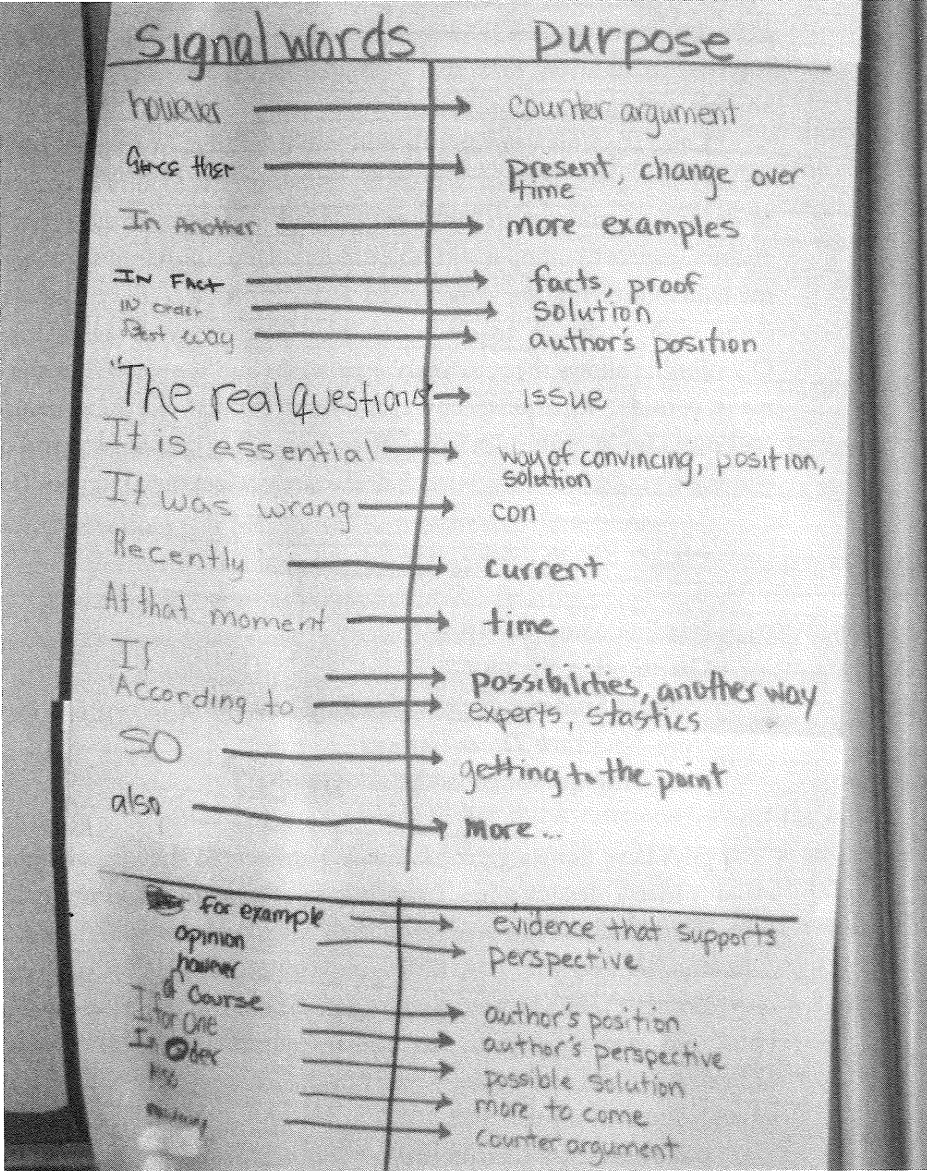 Signal words purpose
however counter argument
Since then present, change over
time
In Another more examples
In Fact facts, proof
IN order solution
Best way author's position
"The real questions" issue
It is essential way of convincing, position,
solution
It was wrong con
Recently current
At that moment time
If possibilities, another way
According to experts, stastics
SO getting to the point
also more...
for example evidence that supports
opinion perspective
however
of course author's position
I for One author's perspective
In Oder possible solution
Also more to come
counter argument